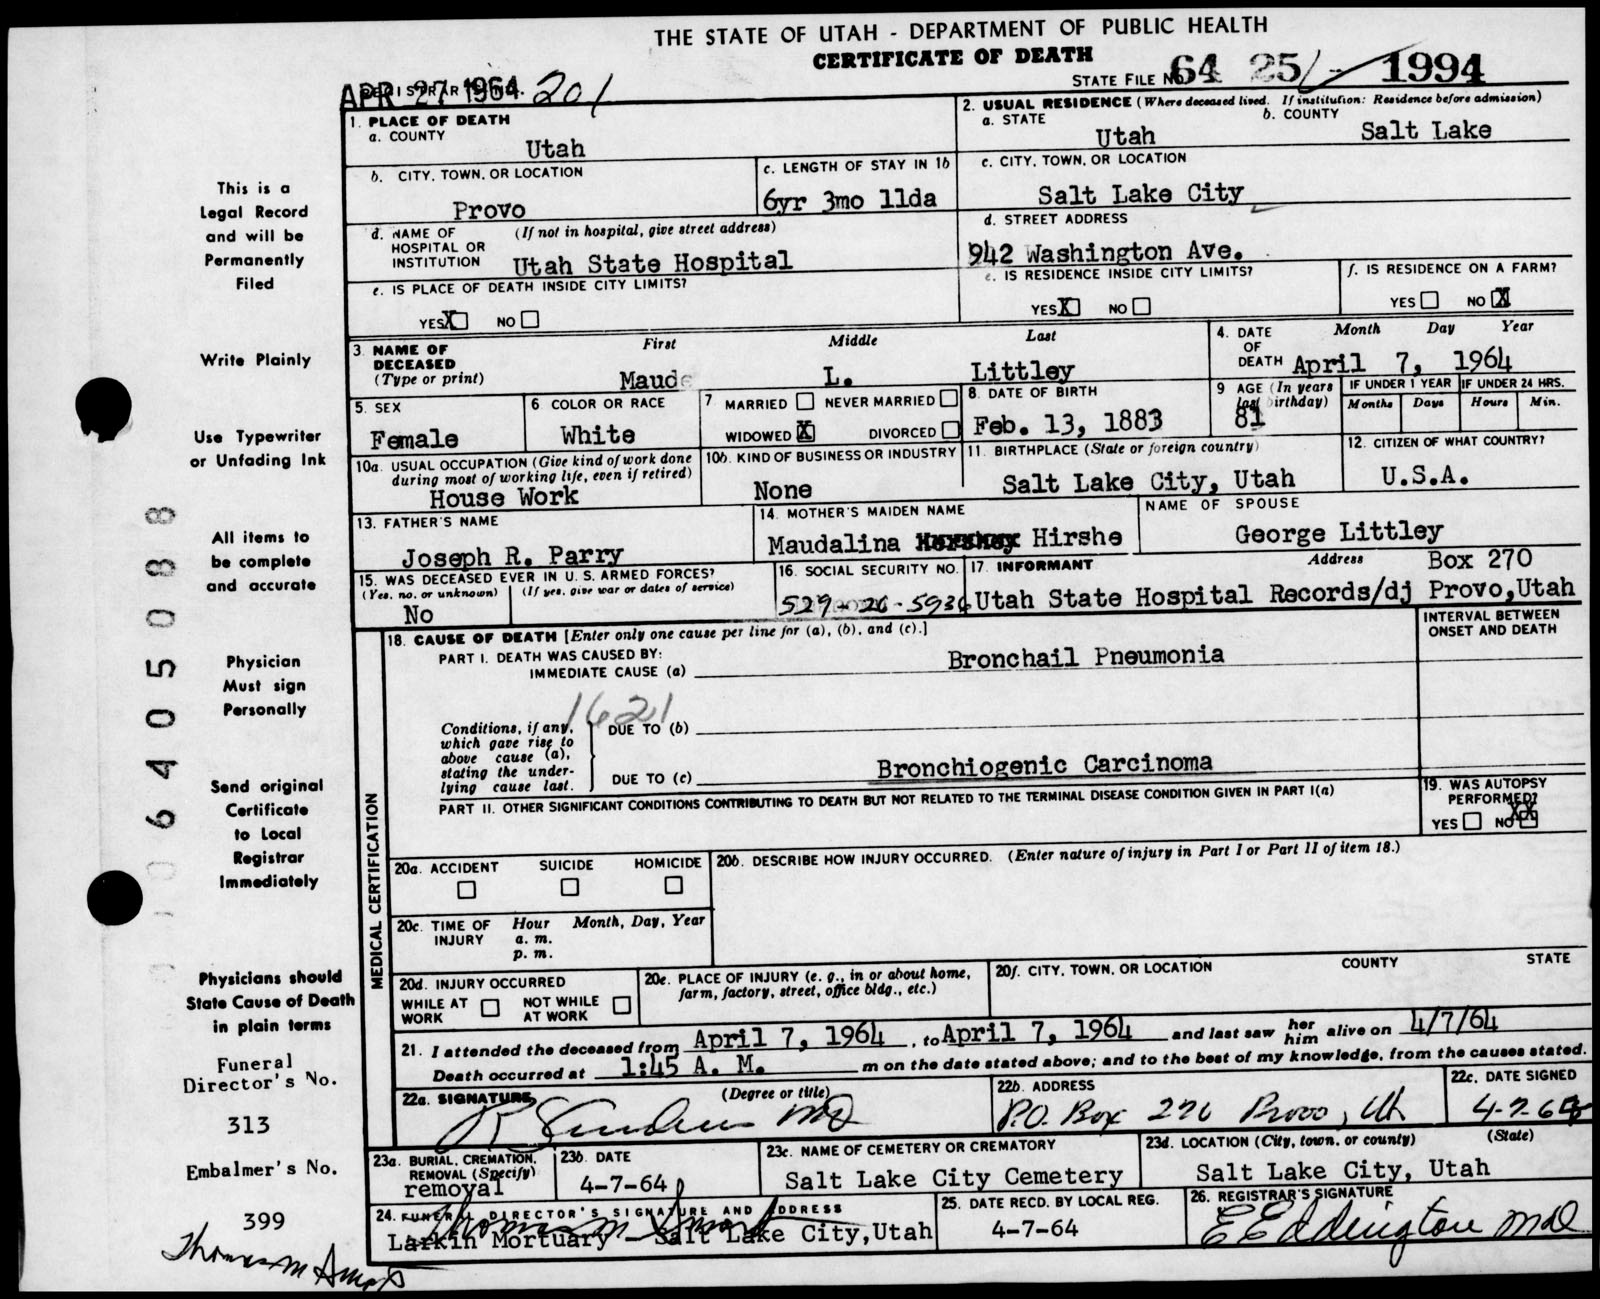 THE STATE OF UTAH - DEPARTMENT OF PUBLIC HEALTH
CERTIFICATE OF DEATH
STATE FILE NO. 64 25 1994
APR 27 1964 201
1. PLACE OF DEATH
a. COUNTY
Utah
2. USUAL RESIDENCE (Where deceased lived. If institution: Residence before admission)
a. STATE
Utah
b. COUNTY
Salt Lake
b. CITY, TOWN, OR LOCATION
Provo
c. LENGTH OF STAY IN 1b
6yr 3mo 11da
c. CITY, TOWN, OR LOCATION
Salt Lake City
d. NAME OF HOSPITAL OR INSTITUTION (If not in hospital, give street address)
Utah State Hospital
d. STREET ADDRESS
942 Washington Ave.
e. IS PLACE OF DEATH INSIDE CITY LIMITS?
YES X NO
e. IS RESIDENCE INSIDE CITY LIMITS?
YES X NO
f. IS RESIDENCE ON A FARM?
YES NO X
3. NAME OF DECEASED (Type or print)
First Middle Last
Maude L. Littley
4. DATE OF DEATH Month Day Year
April 7, 1964
5. SEX
Female
6. COLOR OR RACE
White
7. MARRIED NEVER MARRIED
WIDOWED X DIVORCED
8. DATE OF BIRTH
Feb. 13, 1883
9 AGE (In years last birthday)
81
IF UNDER 1 YEAR IF UNDER 24 HRS.
Months Days Hours Min.
10a. USUAL OCCUPATION (Give kind of work done during most of working life, even if retired)
House Work
10b. KIND OF BUSINESS OR INDUSTRY
None
11. BIRTHPLACE (State or foreign country)
Salt Lake City, Utah
12. CITIZEN OF WHAT COUNTRY?
U.S.A.
13. FATHER'S NAME
Joseph R. Parry
14. MOTHER'S MAIDEN NAME
Maudalina Hirshe
NAME OF SPOUSE
George Littley
15. WAS DECEASED EVER IN U. S. ARMED FORCES?
(Yes, no, or unknown) (If yes, give war or dates of service)
No
16. SOCIAL SECURITY NO.
529-26-5936
17. INFORMANT Address
Box 270
Utah State Hospital Records/dj Provo,Utah
MEDICAL CERTIFICATION
18. CAUSE OF DEATH [Enter only one cause per line for (a), (b), and (c).]
INTERVAL BETWEEN ONSET AND DEATH
PART I. DEATH WAS CAUSED BY:
IMMEDIATE CAUSE (a) Bronchail Pneumonia
1621
Conditions, if any, which gave rise to above cause (a), stating the underlying cause last.
DUE TO (b)
DUE TO (c) Bronchiogenic Carcinoma
PART II. OTHER SIGNIFICANT CONDITIONS CONTRIBUTING TO DEATH BUT NOT RELATED TO THE TERMINAL DISEASE CONDITION GIVEN IN PART I(a)
19. WAS AUTOPSY PERFORMED?
YES NO XX
20a. ACCIDENT SUICIDE HOMICIDE
20b. DESCRIBE HOW INJURY OCCURRED. (Enter nature of injury in Part I or Part II of item 18.)
20c. TIME OF INJURY Hour Month, Day, Year
a. m.
p. m.
20d. INJURY OCCURRED
WHILE AT WORK NOT WHILE AT WORK
20e. PLACE OF INJURY (e. g., in or about home, farm, factory, street, office bldg., etc.)
20f. CITY, TOWN, OR LOCATION COUNTY STATE
21. I attended the deceased from April 7, 1964, to April 7, 1964 and last saw her him alive on 4/7/64
Death occurred at 1:45 A. M. m on the date stated above; and to the best of my knowledge, from the causes stated.
22a. SIGNATURE (Degree or title)
MD
22b. ADDRESS
P.O. Box 270 Provo, Ut
22c. DATE SIGNED
4-7-64
23a. BURIAL, CREMATION, REMOVAL (Specify)
removal
23b. DATE
4-7-64
23c. NAME OF CEMETERY OR CREMATORY
Salt Lake City Cemetery
23d. LOCATION (City, town, or county) (State)
Salt Lake City, Utah
24. FUNERAL DIRECTOR'S SIGNATURE AND ADDRESS
Larkin Mortuary Salt Lake City,Utah
25. DATE RECD. BY LOCAL REG.
4-7-64
26. REGISTRAR'S SIGNATURE
E E Eddington MD
This is a
Legal Record
and will be
Permanently
Filed
Write Plainly
Use Typewriter
or Unfading Ink
All items to
be complete
and accurate
Physician
Must sign
Personally
Send original
Certificate
to Local
Registrar
Immediately
Physicians should
State Cause of Death
in plain terms
Funeral
Director's No.
313
Embalmer's No.
399
Thomas M Smart
6405088